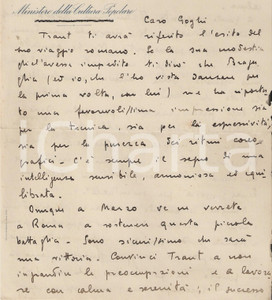 Ministero della Cultura Popolare
Caro Goghi
Traut ti avrà riferito l'esito del
suo viaggio romano. Se la sua modestia
gliel'avesse impedito ti dirò che Braga-
glia (ed io, che l'ho vista danzare per
la prima volta, con lui) ne ha riporta-
to una favorevolissima impressione sia
per la tecnica, sia per la espressività
sia per la purezza dei ritmi coreo-
grafici. C'è sempre il segno di una
intelligenza sensibile, armoniosa ed equi
librata.
Omnque a Marzo ve ne verrete
a Roma a sostenere questa piccola
battaglia. Sono sicurissimo che sarà
una vittoria. Convinci Traut a non
ingrandire le preoccupazioni e a lavora
re con calma e serenità; il successo